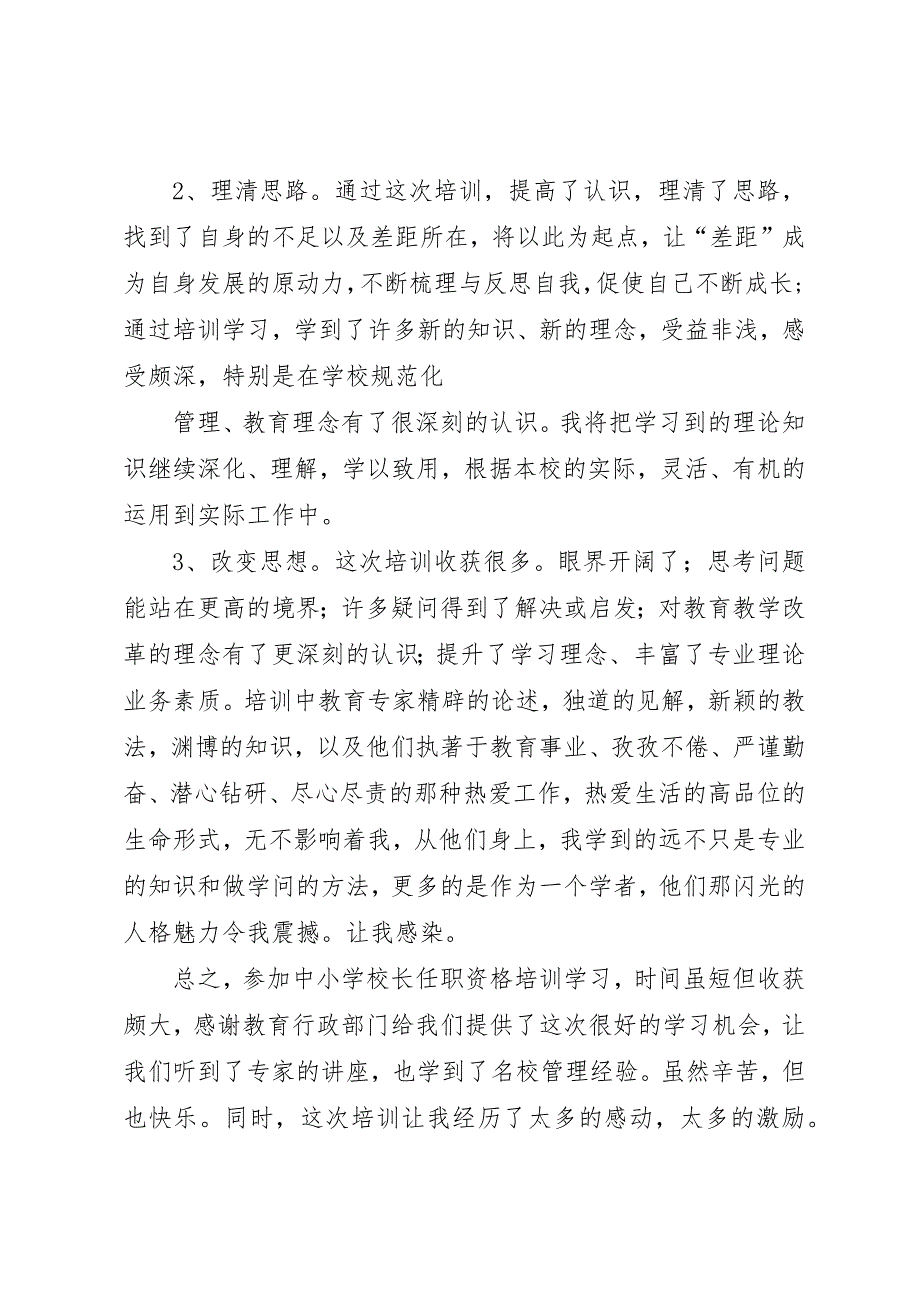 2、理清思路。通过这次培训，提高了认识，理清了思路，
找到了自身的不足以及差距所在，将以此为起点，让“差距”成
为自身发展的原动力，不断梳理与反思自我，促使自己不断成长；
通过培训学习，学到了许多新的知识、新的理念，受益非浅，感
受颇深，特别是在学校规范化
管理、教育理念有了很深刻的认识。我将把学习到的理论知
识继续深化、理解，学以致用，根据本校的实际，灵活、有机的
运用到实际工作中。
3、改变思想。这次培训收获很多。眼界开阔了；思考问题
能站在更高的境界；许多疑问得到了解决或启发；对教育教学改
革的理念有了更深刻的认识；提升了学习理念、丰富了专业理论
业务素质。培训中教育专家精辟的论述，独道的见解，新颖的教
法，渊博的知识，以及他们执著于教育事业、孜孜不倦、严谨勤
奋、潜心钻研、尽心尽责的那种热爱工作，热爱生活的高品位的
生命形式，无不影响着我，从他们身上，我学到的远不只是专业
的知识和做学问的方法，更多的是作为一个学者，他们那闪光的
人格魅力令我震撼。让我感染。
总之，参加中小学校长任职资格培训学习，时间虽短但收获
颇大，感谢教育行政部门给我们提供了这次很好的学习机会，让
我们听到了专家的讲座，也学到了名校管理经验。虽然辛苦，但
也快乐。同时，这次培训让我经历了太多的感动，太多的激励。